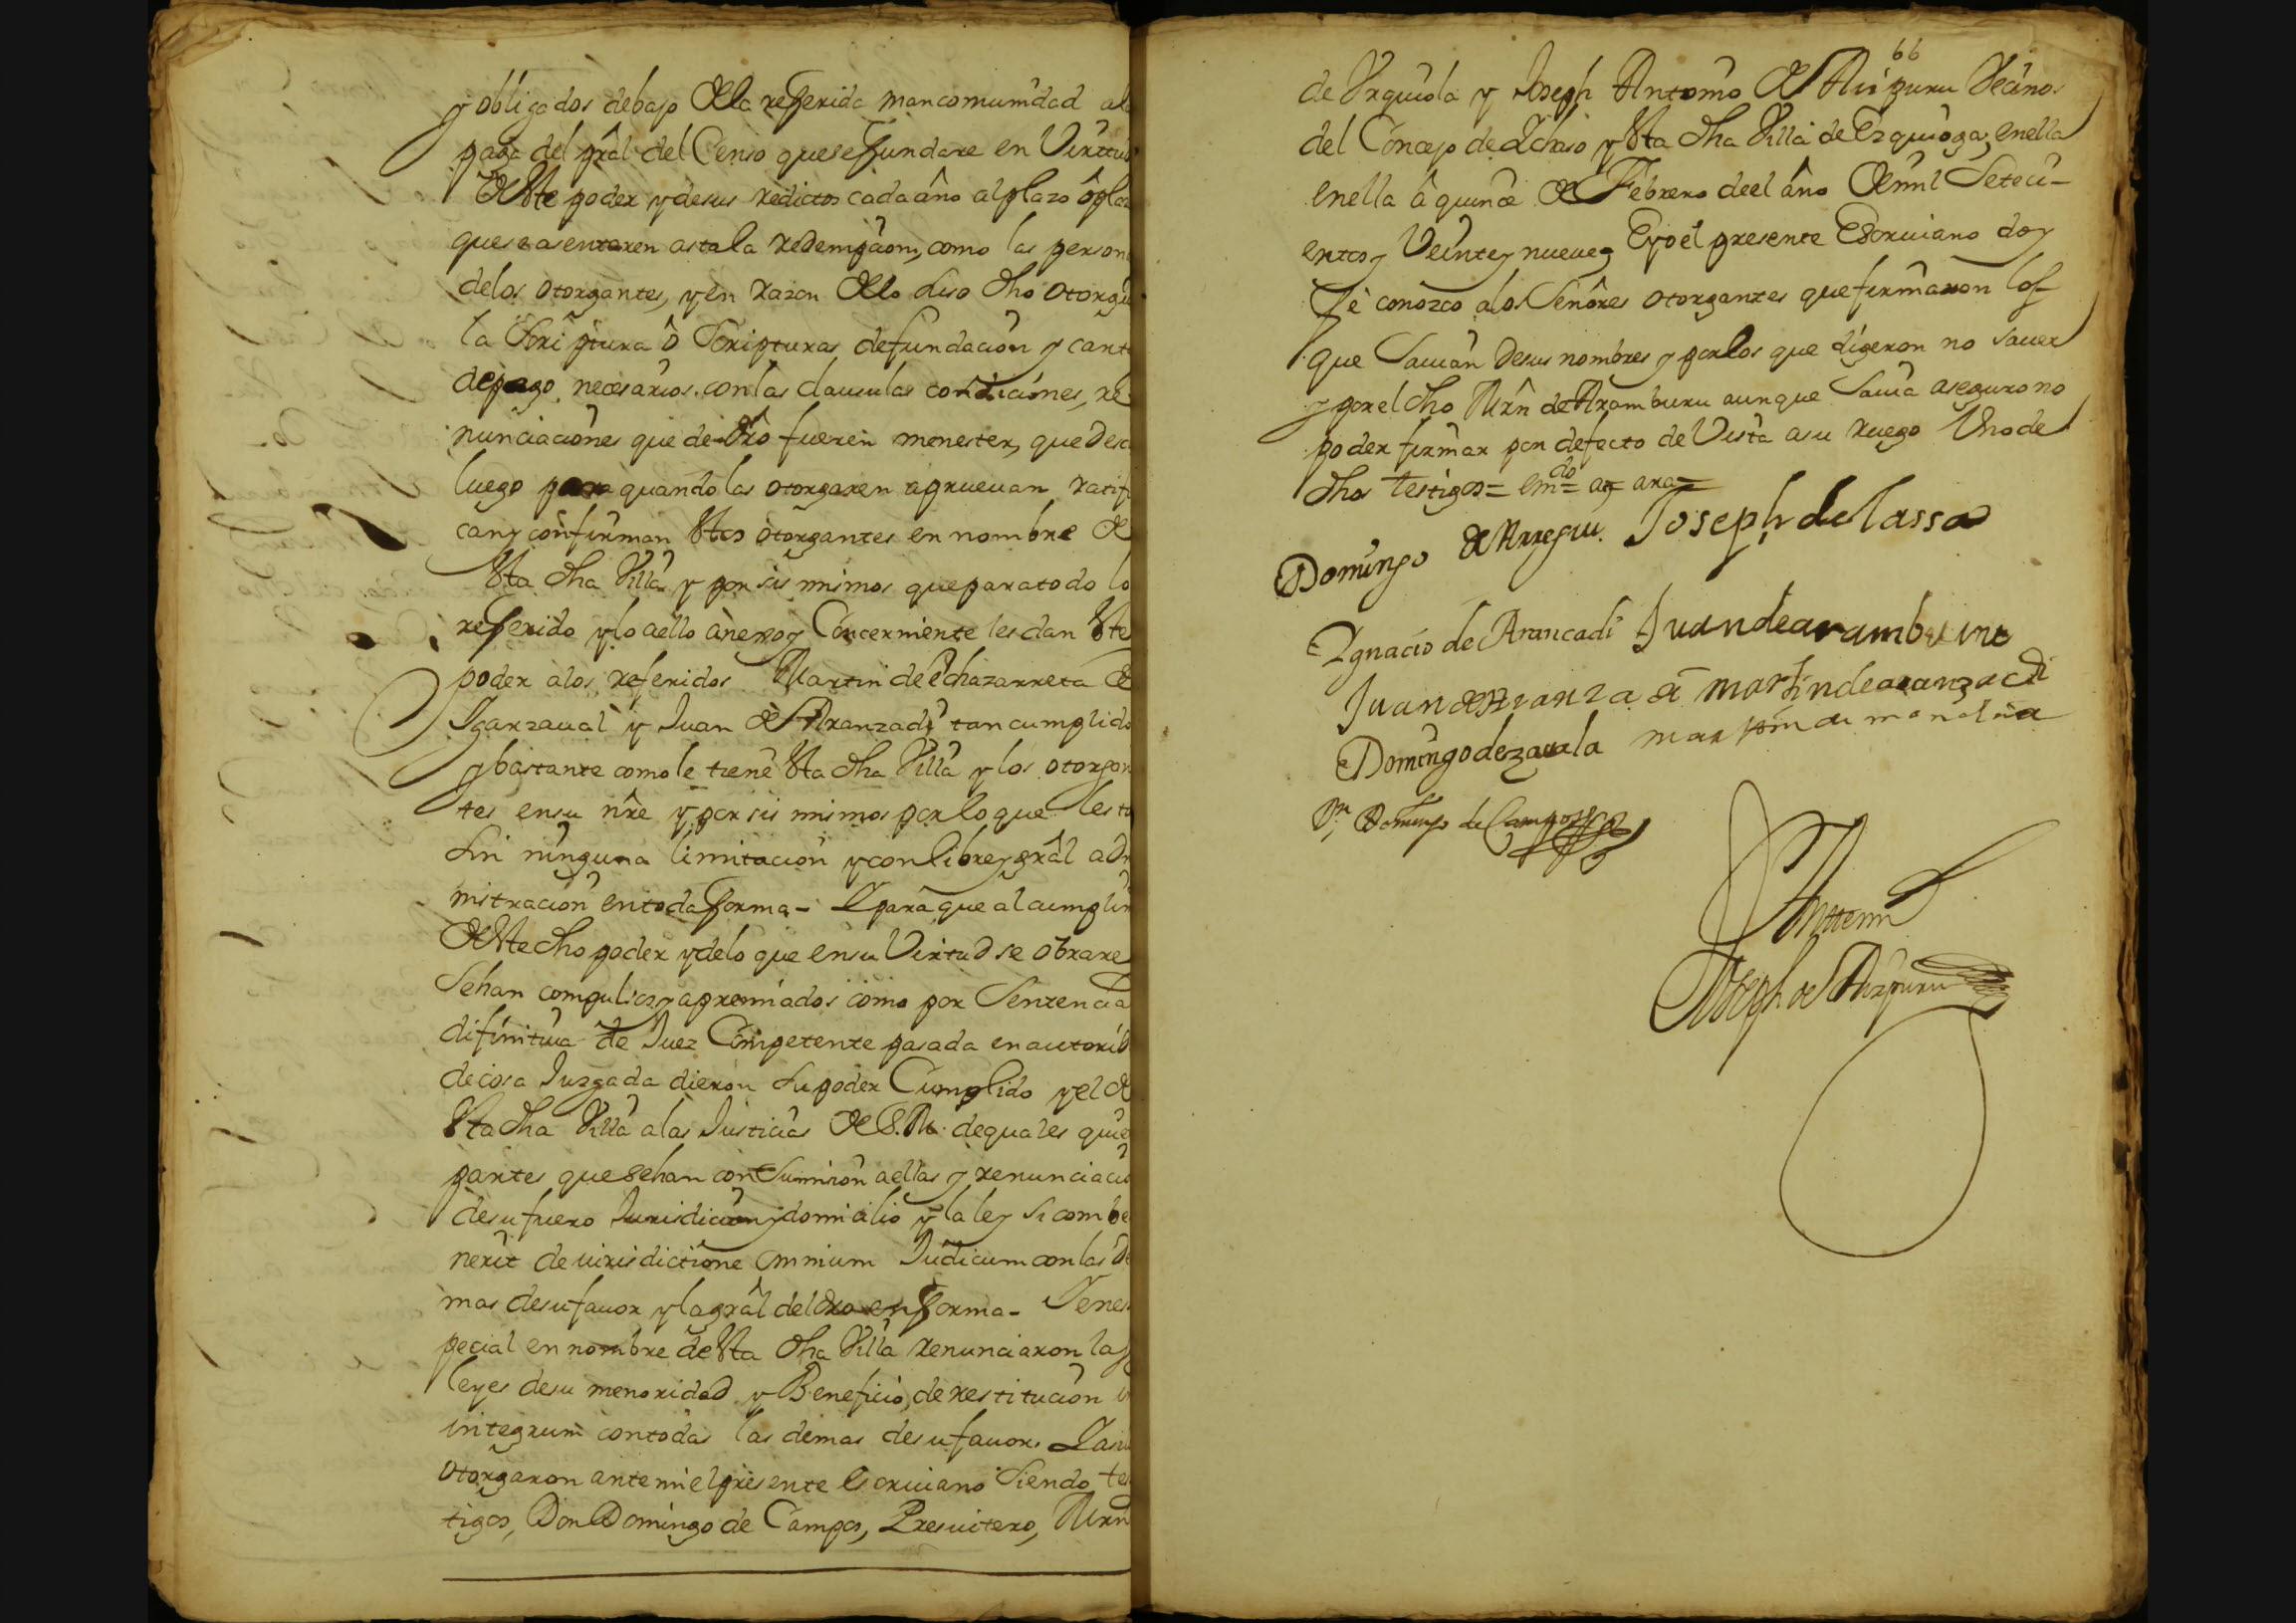 y obligados debajo de la referida mancomunidad ala
paga del prâl del Censo que se fundare en Virtud
de este poder y de sus reditos cada año al plazo ô plaz
que se asentaren asta la redempcion, como las person
de los otorgantes, y en razon de lo dicho otorgu
la Scriptura ô Scripturas de fundacion y carta
de pago necesarios con las clausulas condiciones, re-
nunciaciones que de dro fueren menester, que desde
luego para quando las otorgaren aprueuan ratifi
can y confirman estos otorgantes en nombre de
esta dha Villa y por sis mismos que para todo lo
referido y lo a ello anexo y Concerniente les dan este
poder a los referidos Martin de Echazarreta de
Igarzaual y Juan de Aranzadi tan cumplido
y bastante como le tiene esta dha Villa y los otorgan
tes en su nr̃e y por sis mismos por lo que les to
sin ninguna limitacion y con libre y grâl adm
nistracion en toda forma - Y para que al cumplim
de este dho poder y de lo que en su Virtud se obrare
sehan compulsos y apremiados como por Sentencia
difinitiua de Juez Competente pasada en autorid
de cosa Juzgada dieron su poder Cumplido y el de
esta dha Villa a las Justicias de S. M. de quales quie
partes que sehan con Sumision a ellas y renunciacio
de su fuero Jurisdicion y domicilio y la ley si combe
nerit de iurisdictione omnium Judicum con las de
mas de su fauor y la grâl del dro en forma - Y en es
pecial en nombre de esta dha Villa renunciaron las
leyes de su menoridad y Beneficio de restitucion in
integrum con todas las demas de su fauor. Y asi lo
otorgaron ante mi el presente escriuano siendo tes
tigos, Don Domingo de Campos, Presuitero, Mrñ
66
de Vrquiola y Joseph Antonio de Aizpuru Vecinos
del Concejo de Ichaso y esta dha Villa de Ezquioga, en ella
en ella â quince de Febrero de el año de mil Seteci-
entos y Veinte y nueue, E yo el presente Escriuano doy
fê conozco a los Señores otorgantes que firmaron los
que Sauian de sus nombres y por los que digeron no sauer
y por el dho Mrñ de Aramburu aunque Sauia aseguro no
poder firmar por defecto de Vista a su ruego Uno de
dhos testigos = em.do = ar= ara=
Domingo de Arregui. Joseph de lassa
Ignacio de Arancadi Juan de aramburu
Juan de Aranzadi martin de aranzadi
Domingo de zauala martin de
Dn Domingo de Campos
Ante mi
Joseph de Aizpuru